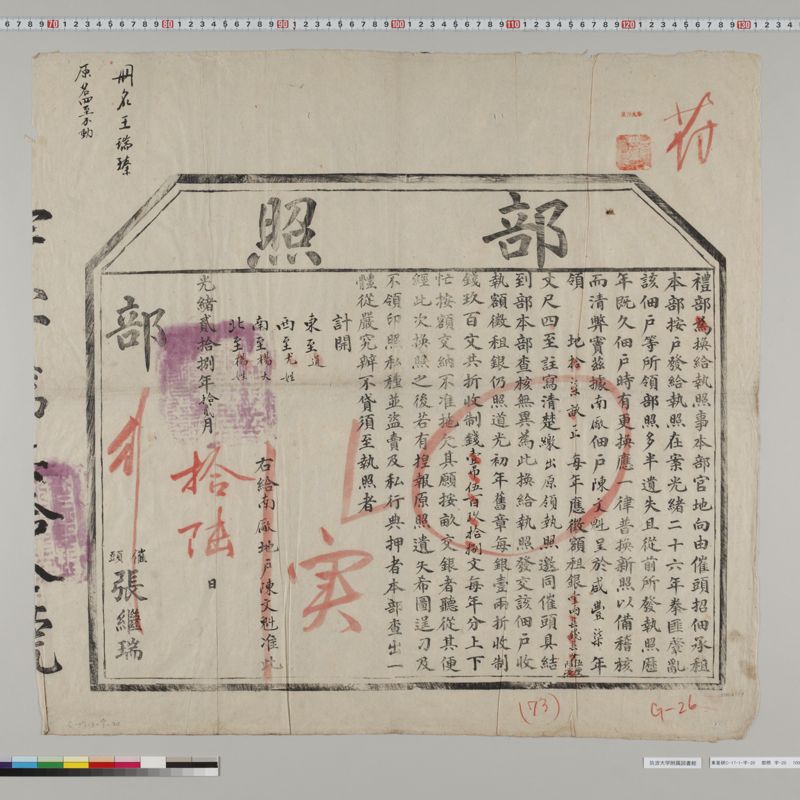 部照
禮部為換給執照事本部官地向由催頭招佃承租
本部按戶發給執照在案光緒二十六年拳匪麏亂
該佃戶等所領部照多半遺失且從前所發執照歷
年既久佃戶時有更換應一律普換新照以備稽核
而清弊竇茲據南廠佃戶陳文魁呈於咸豐柒年
領 地拾柒畝正 每年應徵額租銀壹兩
丈尺四至註寫清楚繳出原領執照邀同催頭具結
到部本部查核無異為此換給執照發交該佃戶收
執額徵租銀仍照道光初年舊章每銀壹兩折收制
錢玖百文共折收制錢壹吊伍百玖拾捌文每年分上下
忙按額交納不准拖欠其願按畝交銀者聽從其便
經此次換照之後若有捏報原照遺失希圖逞刁及
不領印照私種並盜賣及私行典押者本部查出一
體從嚴究辦不貸須至執照者
計開
東至道
西至尤姓
南至楊大
北至楊姓
右給南廠地戶陳文魁准此
光緒貳拾捌年拾貳月
拾陸
日
部
催頭 張維瑞
冊名王瑞臻
原名四至不動
实
(73)
G-26
筑波大学附属図書館
70
80
90
100
110
120
130